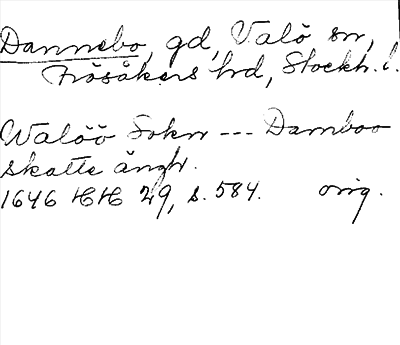 Dannebo, gd, Valö sn,
Frösåkers hd, Stockh. l.
Walöö Sokn --- Damboo
skatte ängh.
1646 HH 29, s. 584. orig.